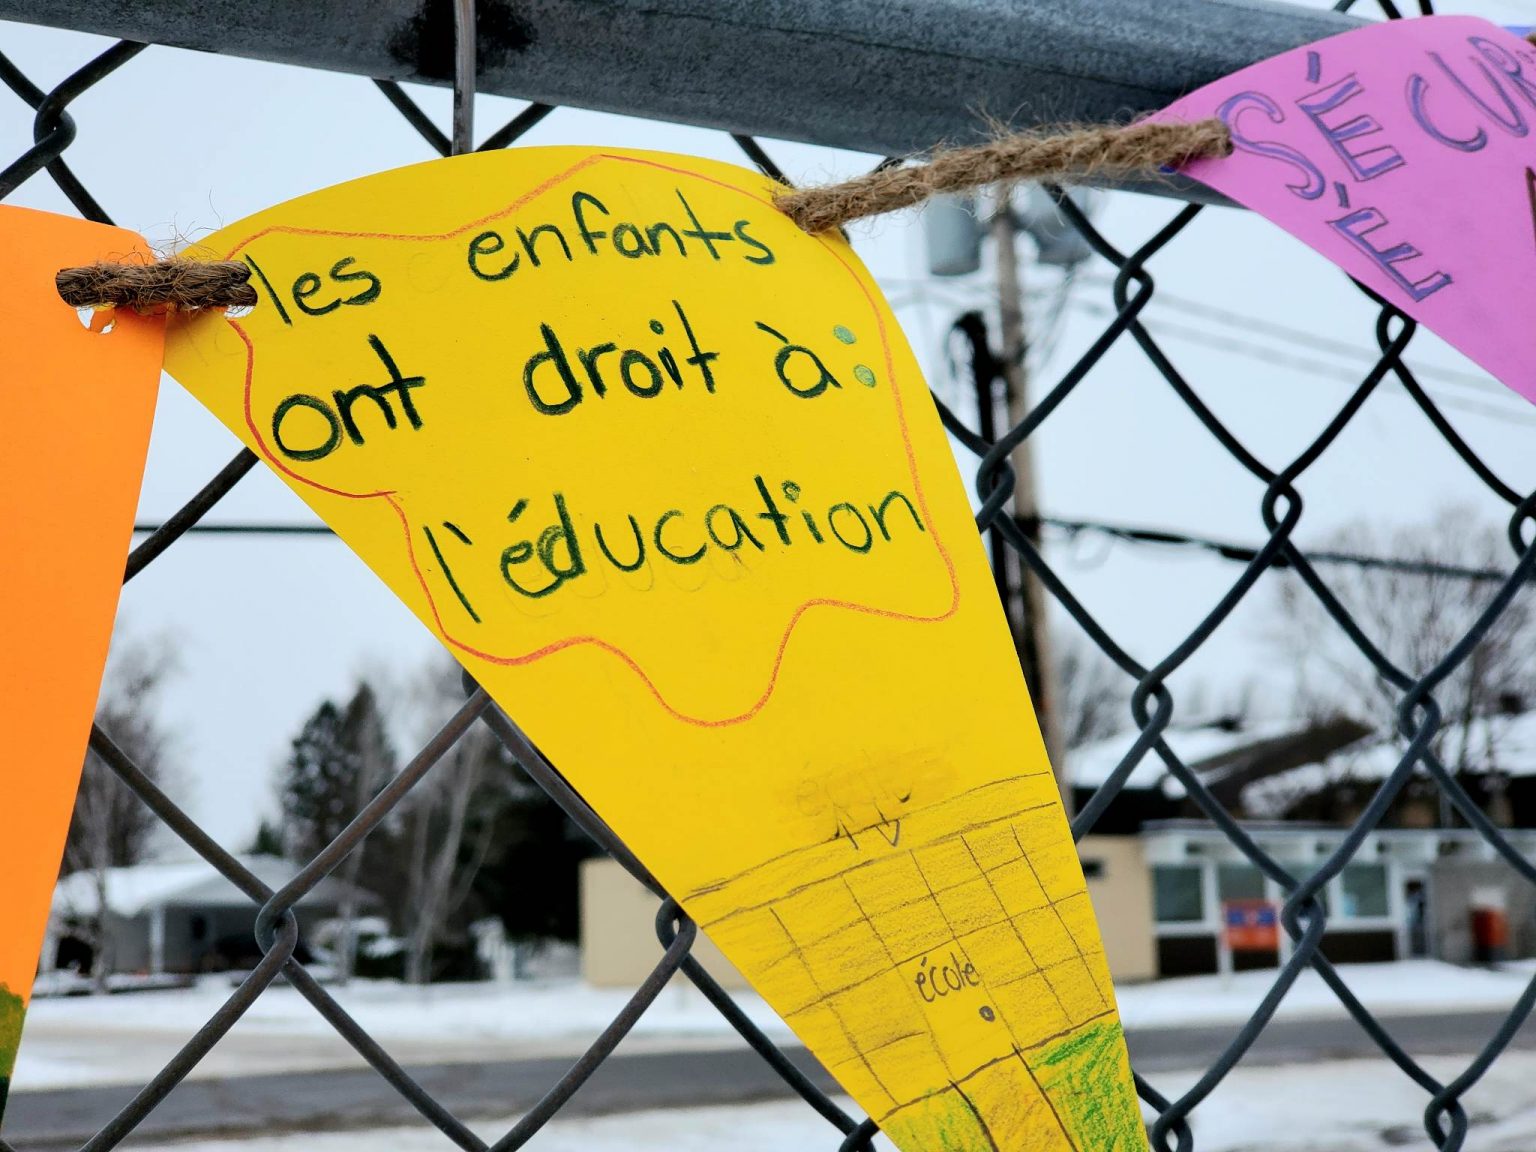 les enfants
ont droit à:
l'éducation
école